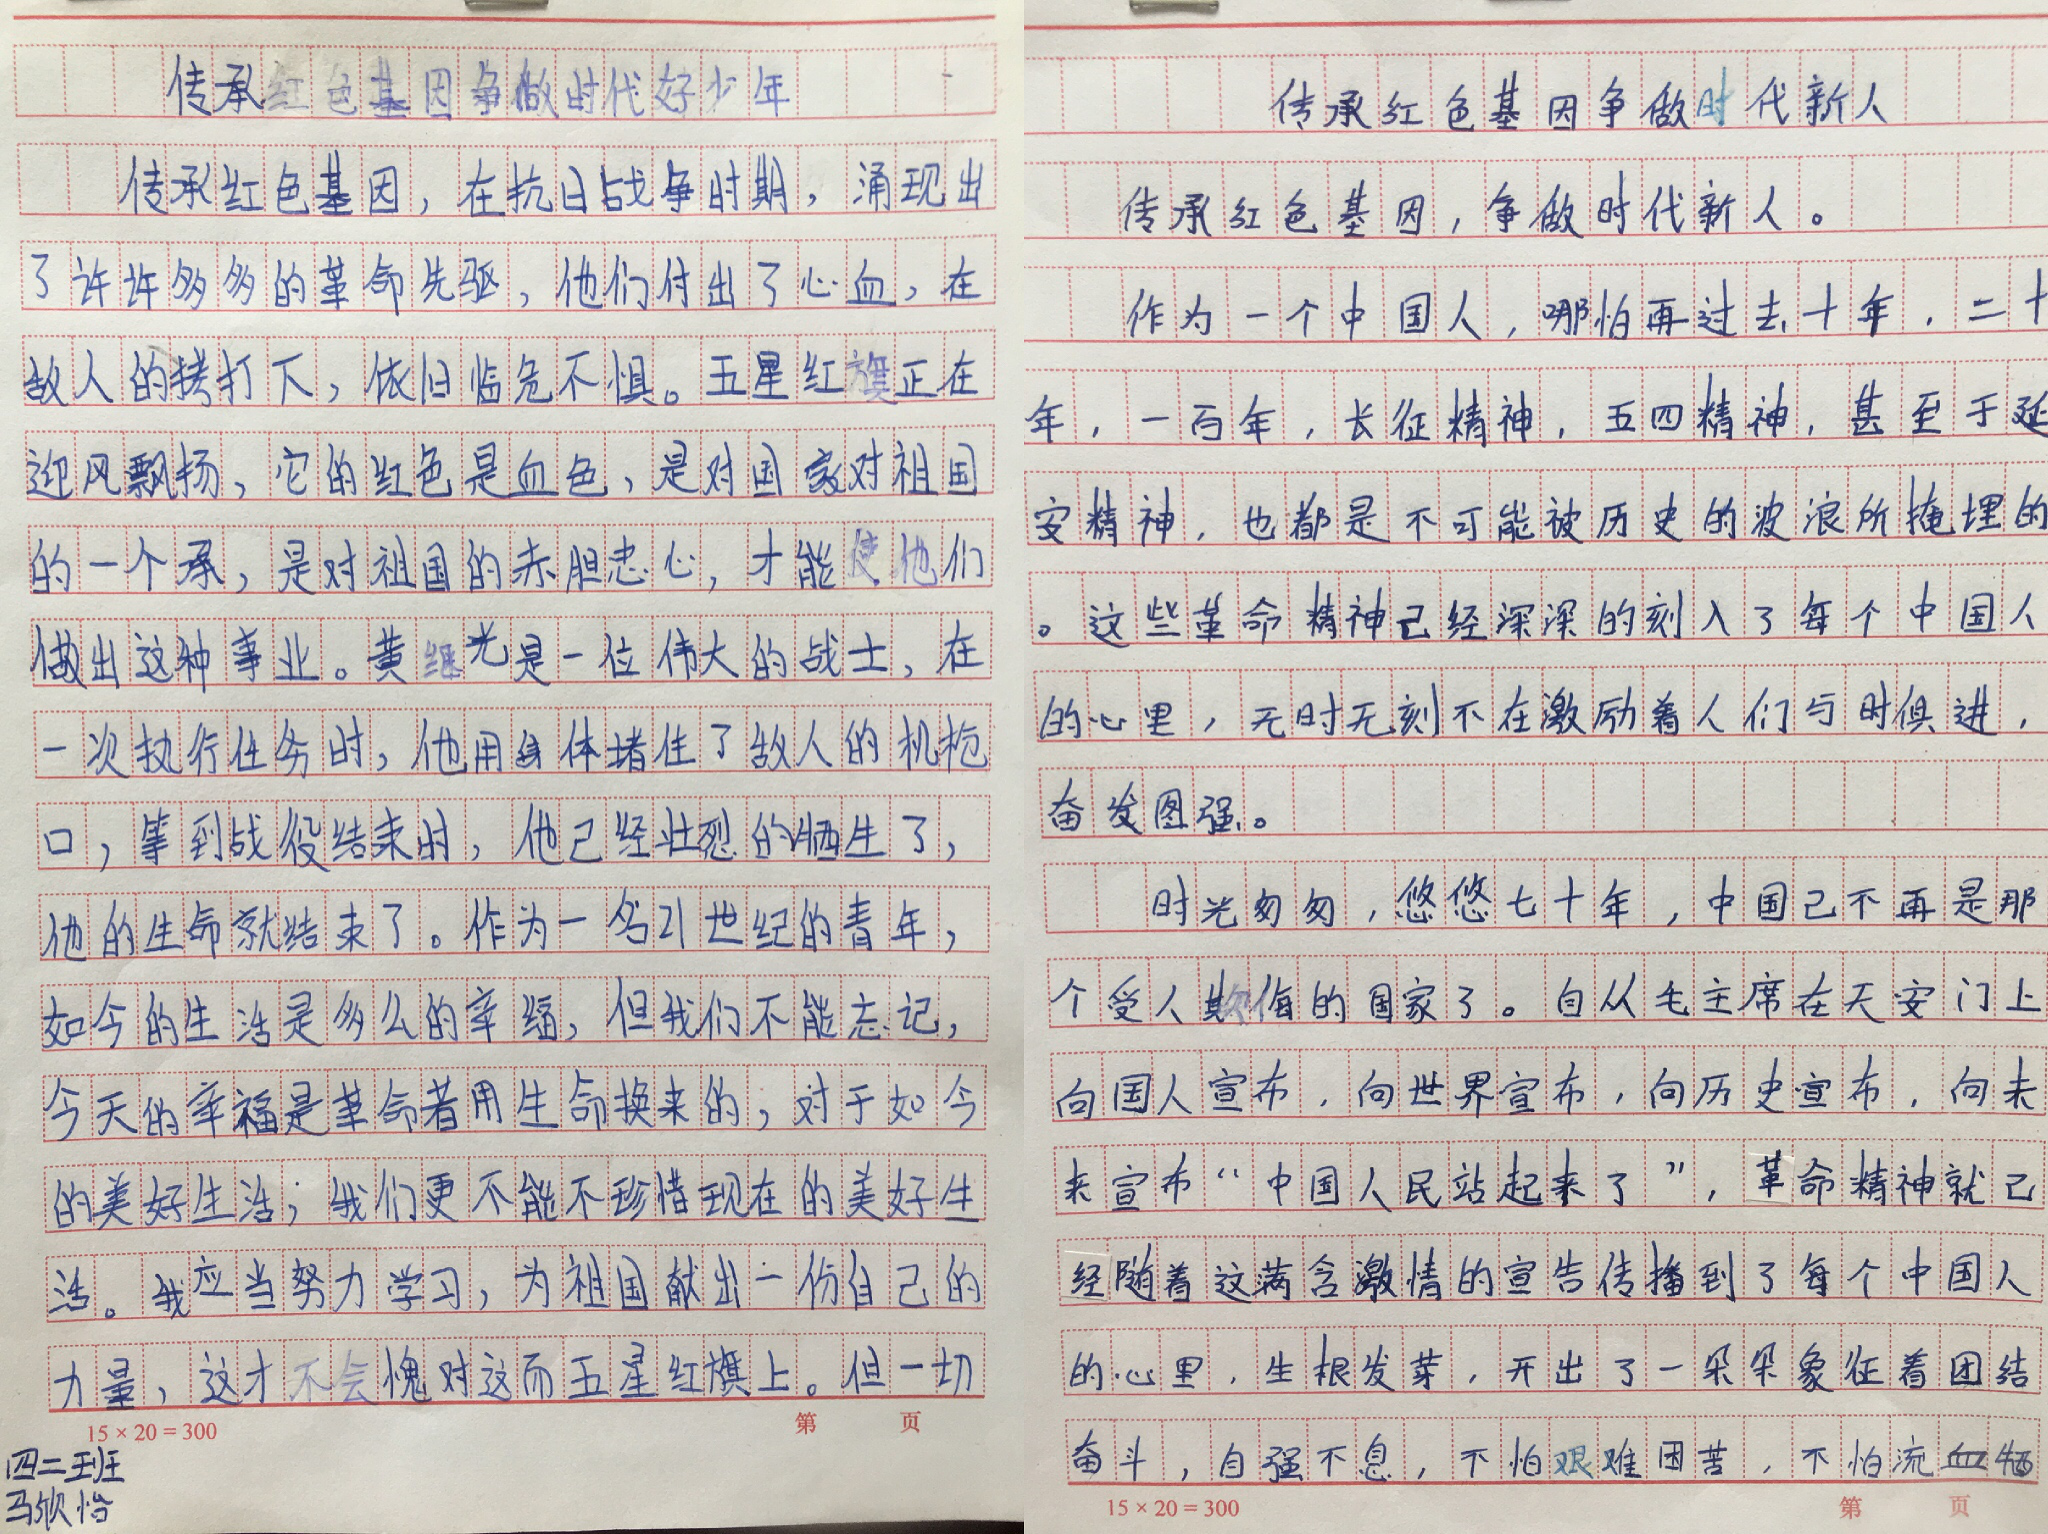 传承红色基因争做时代好少年
传承红色基因，在抗日战争时期，涌现出
了许许多多的革命先驱，他们付出了心血，在
敌人的拷打下，依旧临危不惧。五星红旗正在
迎风飘扬，它的红色是血色，是对国家对祖国
的一个承，是对祖国的赤胆忠心，才能使他们
做出这种事业。黄继光是一位伟大的战士，在
一次执行任务时，他用身体堵住了敌人的机枪
口，等到战役结束时，他己经壮烈的牺生了，
他的生命就结束了。作为一名21世纪的青年，
如今的生活是多么的幸福，但我们不能忘记，
今天的幸福是革命者用生命换来的，对于如今
的美好生活，我们更不能不珍惜现在的美好生
活。我应当努力学习，为祖国献出一份自己的
力量，这才不会愧对这而五星红旗上。但一切
15×20=300 第 页
四二班
马欣怡
传承红色基因争做时代新人
传承红色基因，争做时代新人。
作为一个中国人，哪怕再过去十年，二十
年，一百年，长征精神，五四精神，甚至于延
安精神，也都是不可能被历史的波浪所掩埋的
。这些革命精神已经深深的刻入了每个中国人
的心里，无时无刻不在激励着人们与时俱进，
奋发图强。
时光匆匆，悠悠七十年，中国己不再是那
个受人欺侮的国家了。自从毛主席在天安门上
向国人宣布，向世界宣布，向历史宣布，向未
来宣布“中国人民站起来了”，革命精神就已
经随着这满含激情的宣告传播到了每个中国人
的心里，生根发芽，开出了一朵朵象征着团结
奋斗，自强不息，不怕艰难困苦，不怕流血牺
15×20=300 第 页